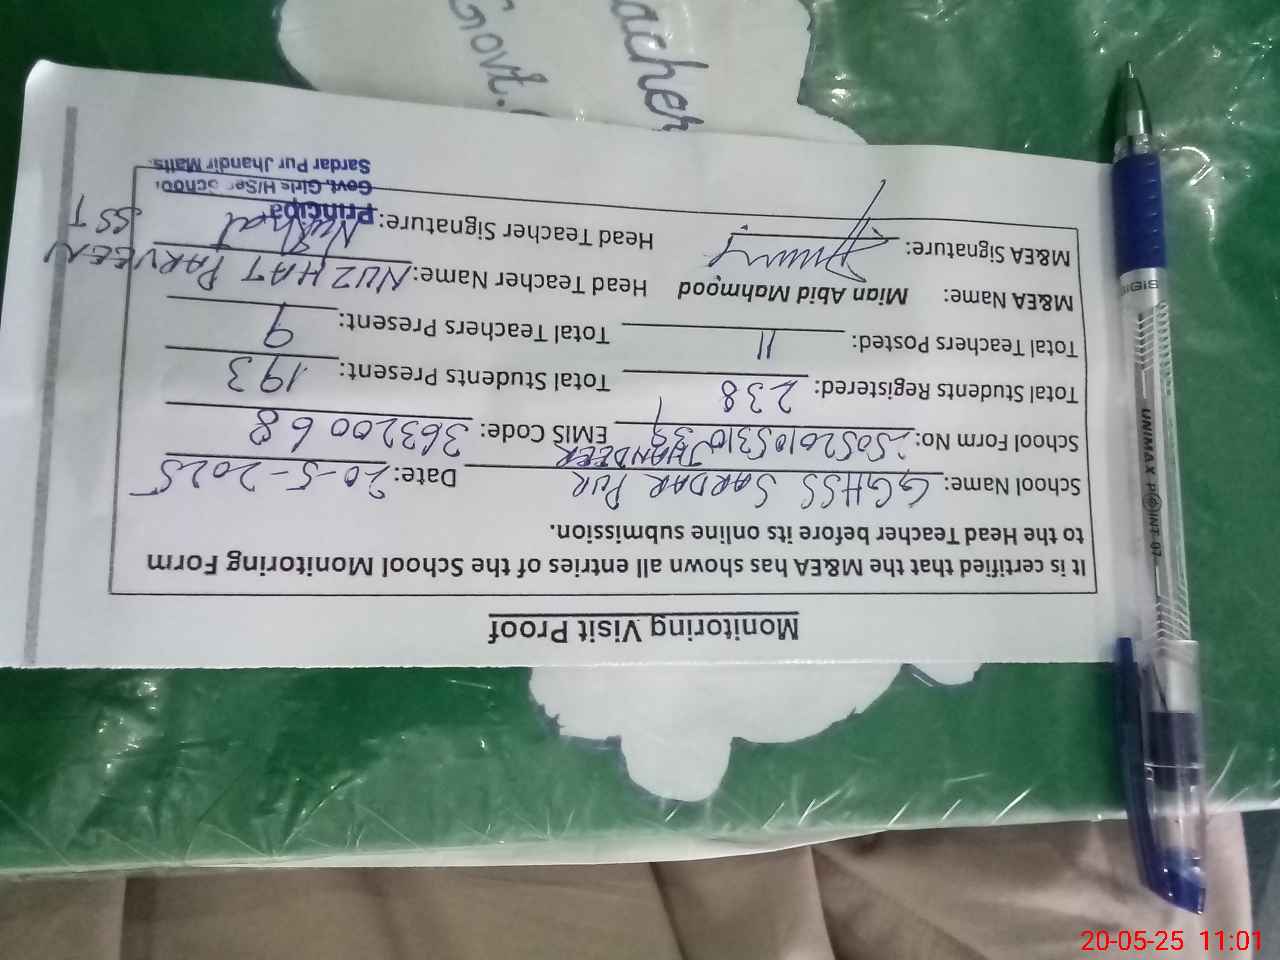 Monitoring Visit Proof
It is certified that the M&EA has shown all entries of the School Monitoring Form
to the Head Teacher before its online submission.
School Name: GGHSS SARDAR PUR JHANDEER Date: 20-5-2025
School Form No: EMIS Code: 36320068
Total Students Registered: 238 Total Students Present: 193
Total Teachers Posted: 11 Total Teachers Present: 9
M&EA Name: Mian Abid Mahmood Head Teacher Name: NUZHAT PARVEEN SST
M&EA Signature: Head Teacher Signature: Nuzhat
Principal
Govt. Girls H/Sec School
Sardar Pur Jhandir Mailsi
eacher
Govt.
UNIMAX POINT 07
20-05-25 11:01